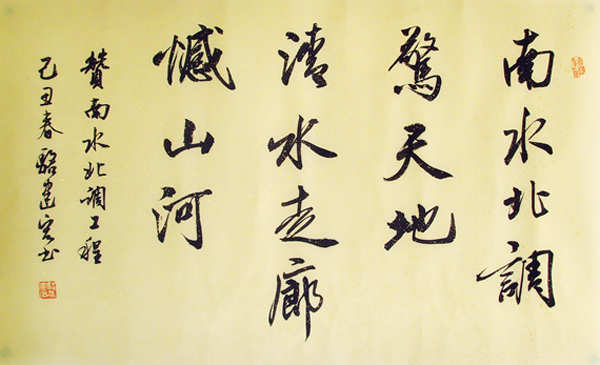 南水北調
驚天地
清水走廊
憾山河
贊南水北調工程
己丑春駱建宏书